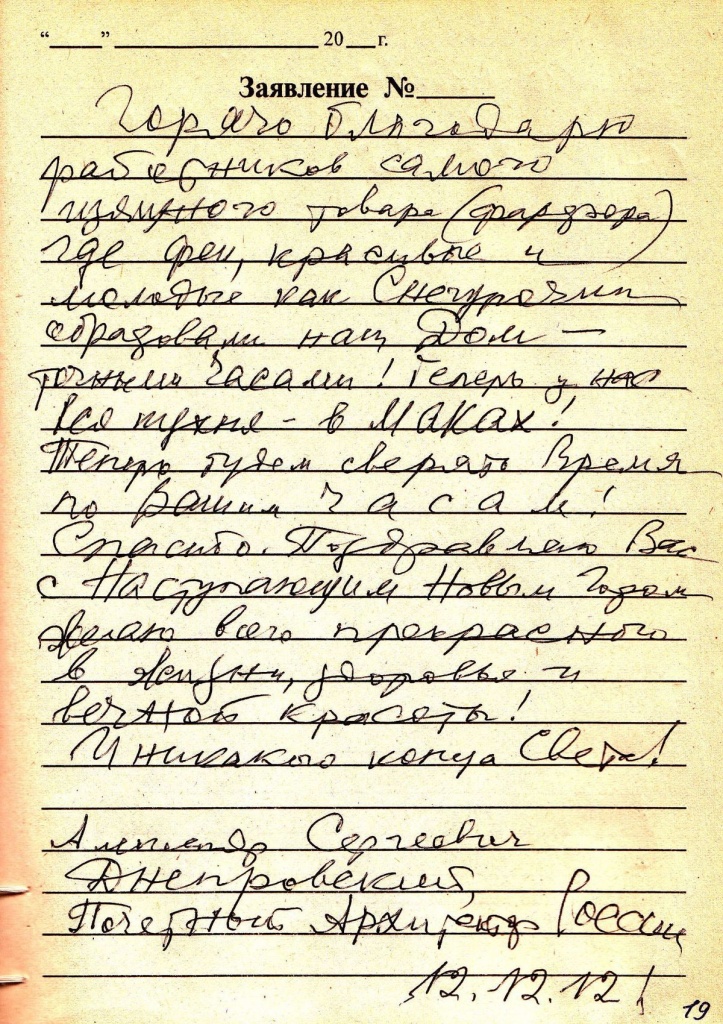 “____” ____________ 20__ г.
Заявление №______
Горячо благодарю
работников самого
изящного товара (фарфора)
где феи, красивые и
молодые как Снегурочки
образовали наш Дом —
точными часами! Теперь у нас
вся кухня - в МАКАХ!
Теперь будем сверять Время
по Вашим Часам!
Спасибо. Поздравляю Вас
с Наступающим Новым Годом
желаю всего прекрасного
в жизни, здоровья и
вечной красоты!
И никакого конца Света!
Александр Сергеевич
Днепровский,
Почетный Архитектор России
12.12.12!
19